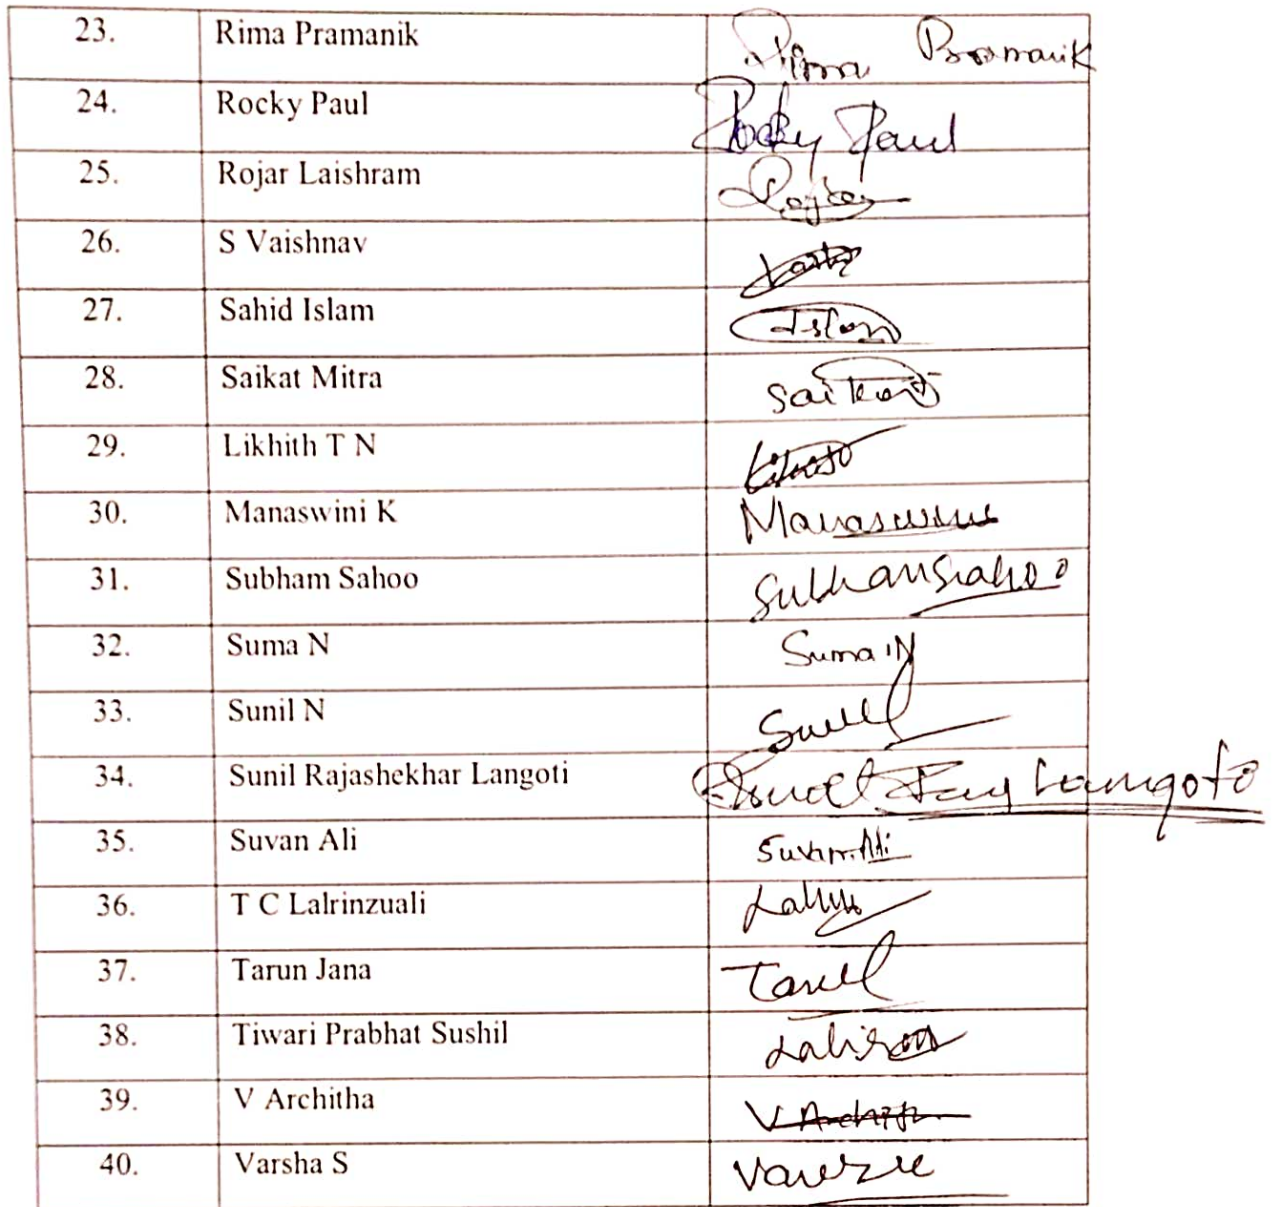 23. Rima Pramanik Rima Pramanik
24. Rocky Paul Rocky Paul
25. Rojar Laishram
26. S Vaishnav
27. Sahid Islam Islam
28. Saikat Mitra Saikat
29. Likhith T N
30. Manaswini K Manaswini
31. Subham Sahoo Subham Sahoo
32. Suma N Suma N
33. Sunil N Sunil
34. Sunil Rajashekhar Langoti
35. Suvan Ali Suvan Ali
36. T C Lalrinzuali
37. Tarun Jana
38. Tiwari Prabhat Sushil
39. V Architha V Archith
40. Varsha S